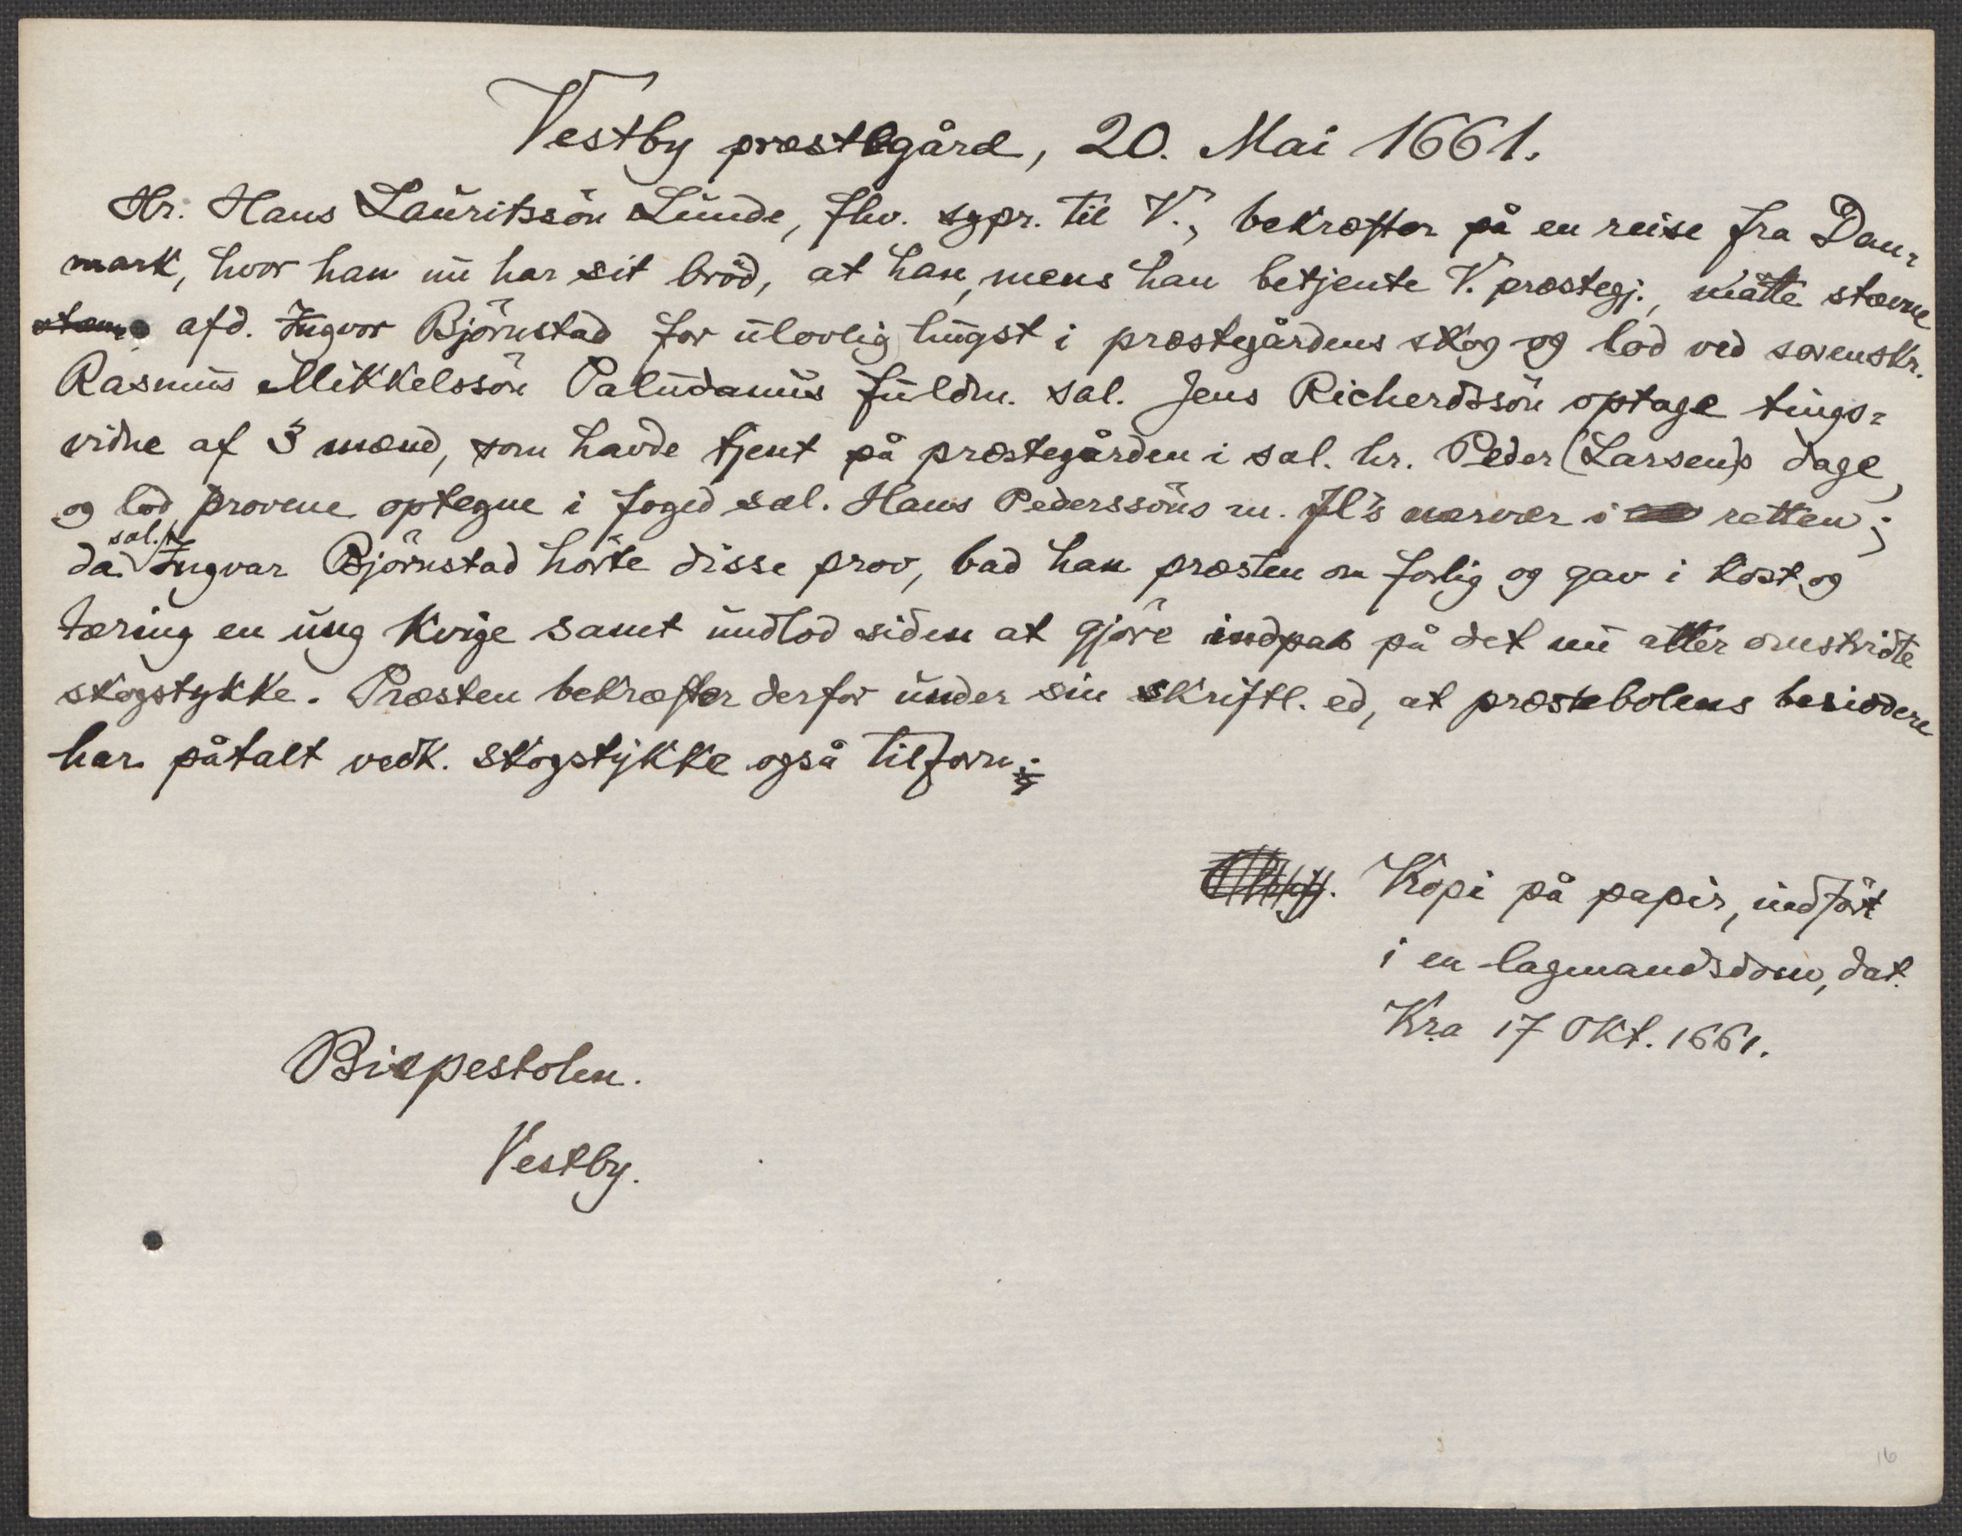 Vestby præstegård, 20. Mai 1661.
Hr. Hans Lauritssön Lunde, fhv. sgpr. til V., bekræfter på en reise fra Dan-
mark, hvor han nu har sit bröd, at han, mens han betjente V. præstegj., måtte stævne
afd. Ingvar Björnstad for ulovlig hugst i præstegårdens skog og lod ved sorenskr.
Rasmus Mikkelssön Paludanus fuldm. sal. Jens Richerdssön optage tings-
vidne af 3 mænd, som havde tjent på præstegården i sal. hr. Peder (Larsen)s dage,
og lod provene optegne i foged sal. Hans Pederssöns m. fl's nærvær i retten;
da sal. Ingvar Björnstad hörte disse prov, bad han præsten om forlig og gav i kost og
tæring en ung kvige samt undlod siden at gjöre indpas på det nu atter omstridte
skogstykke. Præsten bekræfter derfor under sin skriftl. ed, at præstebolens besiddere
har påtalt vedk. skogstykke også tilforn.
Kopi på papir, indfört
i en lagmandsdom, dat.
Kra 17 Okt. 1661.
Bispestolen.
Vestby.
16